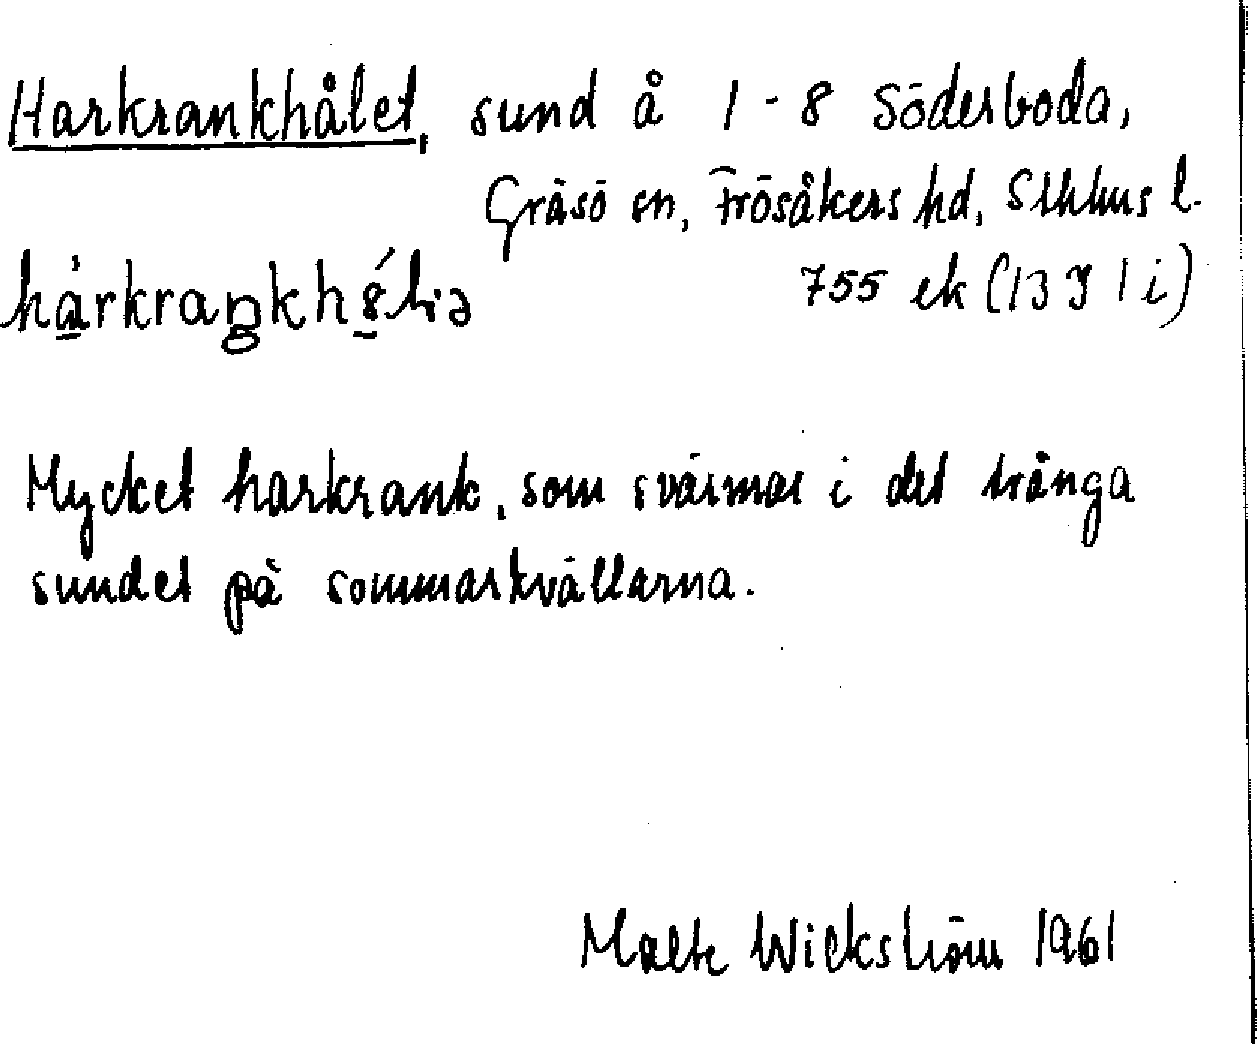 Harkrankhålet, sund å 1-8 Söderboda,
Gräsö sn, Frösåkers hd, Sthlms l.
755 ek (13 I 1 i)
Mycket harkrank, som svärmar i det trånga
sundet på sommarkvällarna.
Malte Wickström 1961